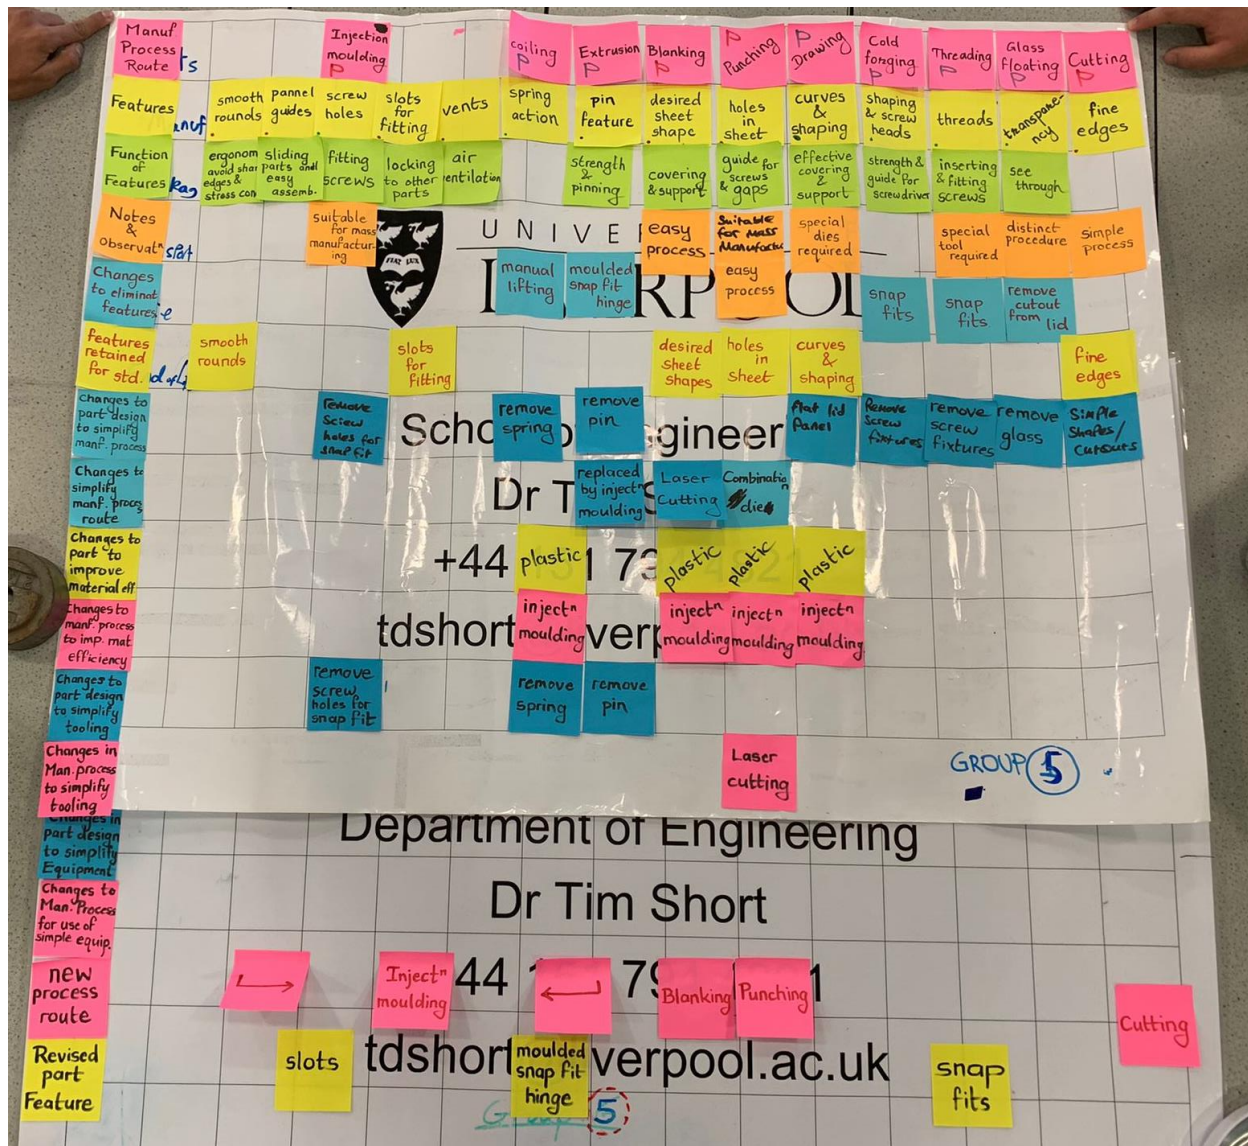 Manuf
Process
Route
ts
Injection
moulding
P
coiling
P
Extrusion
P
Blanking
P
P
Punching
P
Drawing
Cold
forging
P
Threading
P
Glass
floating
P
Cutting
P
Features
anuf
smooth
rounds
pannel
guides
screw
holes
slots
for
fitting
vents
spring
action
pin
feature
desired
sheet
shape
holes
in
sheet
curves
&
shaping
shaping
& screw
heads
threads
transpare-
ncy
fine
edges
Function
of
Features
kag
ergonom
avoid shar
edges &
stress con
sliding
parts and
easy
assemb.
fitting
screws
locking
to other
parts
air
ventilation
strength
&
pinning
covering
& support
guide for
screws
& gaps
effective
covering
&
support
strength &
guide for
screwdriver
inserting
& fitting
screws
see
through
Notes
&
Observatⁿ
suitable
for mass
manufactur-
ing
UNIVE
easy
process
Suitable
for Mass
Manufactu
easy
process
special
dies
required
special
tool
required
distinct
procedure
simple
process
FIAT LUX
Changes
to eliminat
features
manual
lifting
moulded
snap fit
hinge
L
RP
OL
snap
fits
snap
fits
remove
cutout
from lid
features
retained
for std.
smooth
rounds
slots
for
fitting
desired
sheet
shapes
holes
in
sheet
curves
&
shaping
fine
edges
changes to
part design
to simplify
manf. process
remove
screw
holes for
snap fit
School of Engineer
remove
spring
remove
pin
flat lid
Panel
Remove
screw
fixtures
remove
screw
fixtures
remove
glass
Simple
Shapes/
Cutouts
Changes to
simplify
manf. proces
route
Dr T
S
replaced
by injectⁿ
moulding
Laser
Cutting
Combinatio
n
die
Changes to
part to
improve
material eff
+44
1 79
plastic
plastic
plastic
plastic
Changes to
manf. process
to imp. mat
efficiency
tdshort
verp
injectⁿ
moulding
injectⁿ
moulding
injectⁿ
moulding
injectⁿ
moulding
Changes to
part design
to simplify
tooling
remove
screw
holes for
snap fit
remove
spring
remove
pin
Changes in
Man. process
to simplify
tooling
Laser
cutting
GROUP 5
Changes in
part design
to simplify
Equipment
Department of Engineering
Changes to
Man. Process
for use of
simple equip.
Dr Tim Short
new
process
route
→
Injectⁿ
moulding
44
79
1
←
Blanking
Punching
Cutting
Revised
part
Feature
slots
tdshort
verpool.ac.uk
moulded
snap fit
hinge
snap
fits
Group 5